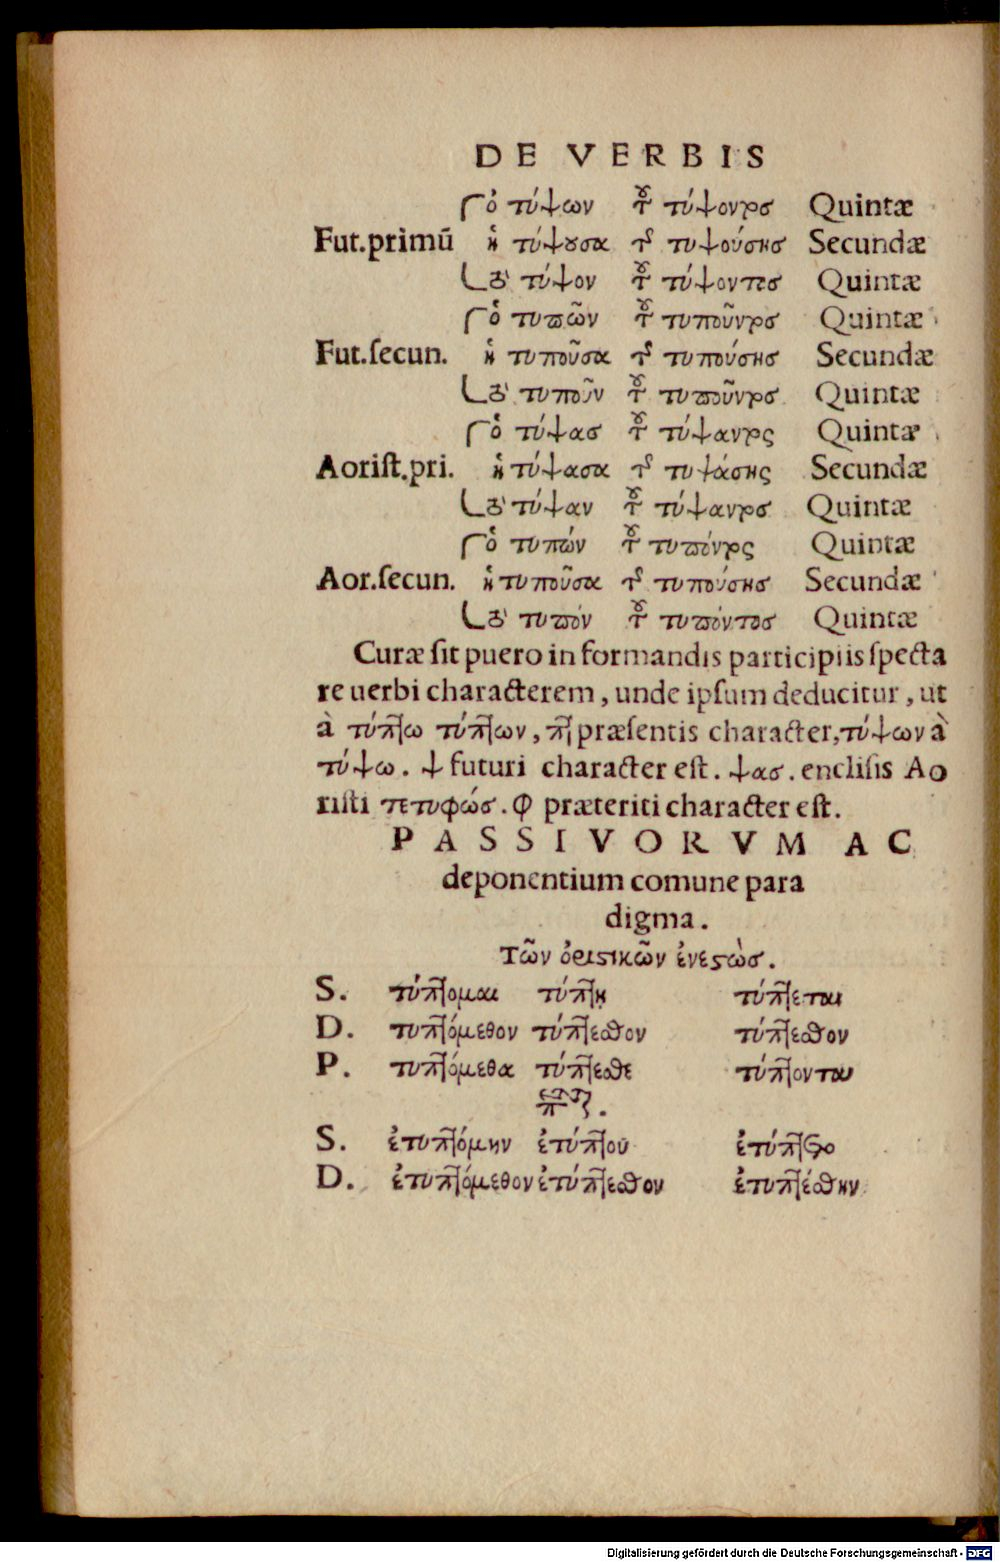 DE VERBIS
ὁ τύψων τοῦ τύψοντος Quintæ
Fut.primū ἡ τύψουσα τῆς τυψούσης Secundæ
τὸ τύψον τοῦ τύψοντος Quintæ
ὁ τυπῶν τοῦ τυποῦντος Quintæ
Fut.ſecun. ἡ τυποῦσα τῆς τυπούσης Secundæ
τὸ τυποῦν τοῦ τυποῦντος Quintæ
ὁ τύψας τοῦ τύψαντος Quintæ
Aoriſt.pri. ἡ τύψασα τῆς τυψάσης Secundæ
τὸ τύψαν τοῦ τύψαντος Quintæ
ὁ τυπών τοῦ τυπόντος Quintæ
Aor.ſecun. ἡ τυποῦσα τῆς τυπούσης Secundæ
τὸ τυπόν τοῦ τυπόντος Quintæ
Curæ ſit puero in formandis participiis ſpecta
re uerbi characterem, unde ipſum deducitur, ut
à τύπτω τύπτων, πτ præſentis character, τύψων à
τύψω. ψ futuri character eſt. ψας. encliſis Ao
riſti τετυφώς. φ præteriti character eſt.
PASSIVORVM AC
deponentium comune para
digma.
Τῶν ὁριστικῶν ἐνεστώς.
S. τύπτομαι τύπτη τύπτεται
D. τυπτόμεθον τύπτεσθον τύπτεσθον
P. τυπτόμεθα τύπτεσθε τύπτονται
S. ἐτυπτόμην ἐτύπτου ἐτύπτετο
D. ἐτυπτόμεθον ἐτύπτεσθον ἐτυπτέσθην
Digitalisierung gefördert durch die Deutsche Forschungsgemeinschaft - DFG